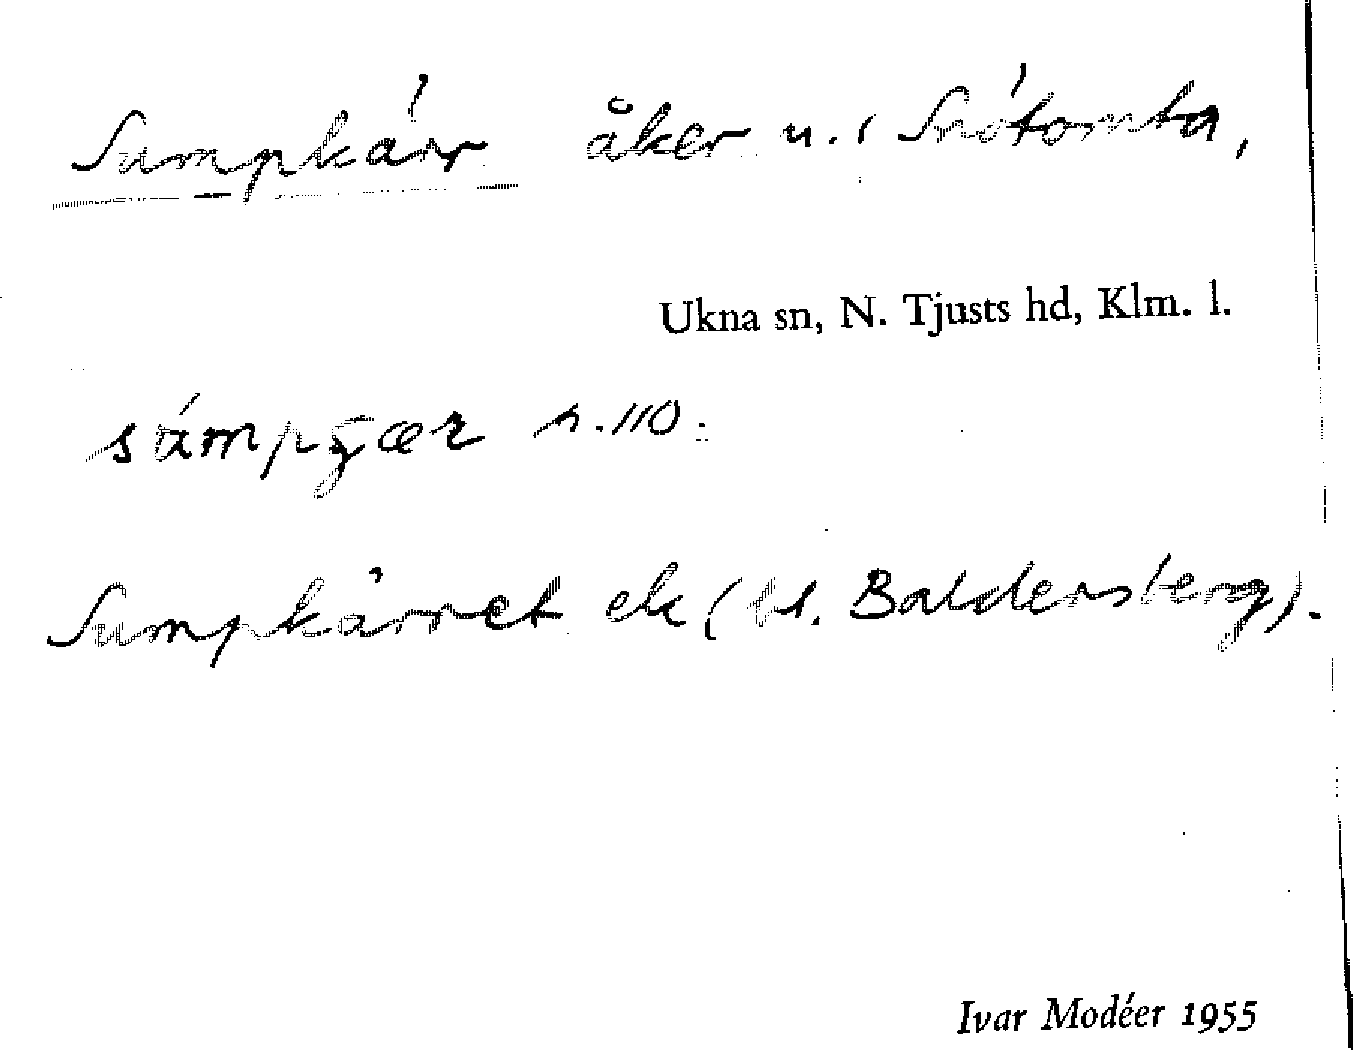 Sumpkärr åker u. Snötomta,
Ukna sn, N. Tjusts hd, Klm. l.
s. 110.
Sumpkärret ek (bl. Baldersberg).
Ivar Modéer 1955